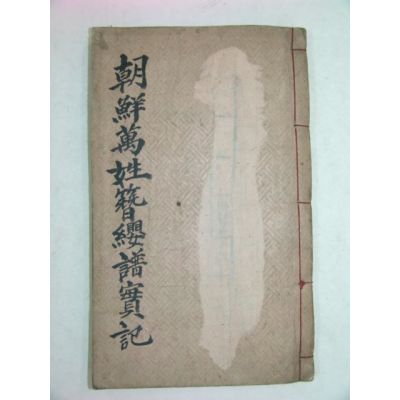 朝鮮萬姓簪纓譜實記